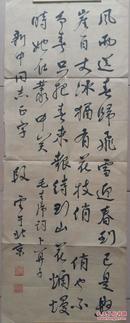 风雨送春归飞雪迎春到已是悬
崖百丈冰犹有花枝俏俏也不
争春只把春来报待到山花烂熳
时她在丛中笑 毛主席词卜算子
新中同志正字 段云于北京